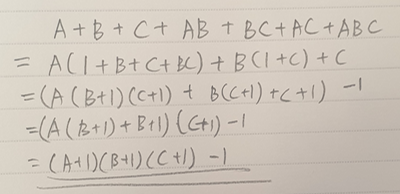 A + B + C + AB + BC + AC + ABC
= A(1 + B + C + BC) + B(1 + C) + C
= (A(B+1)(C+1) + B(C+1) + C+1) - 1
= (A(B+1) + B+1)(C+1) - 1
= (A+1)(B+1)(C+1) - 1